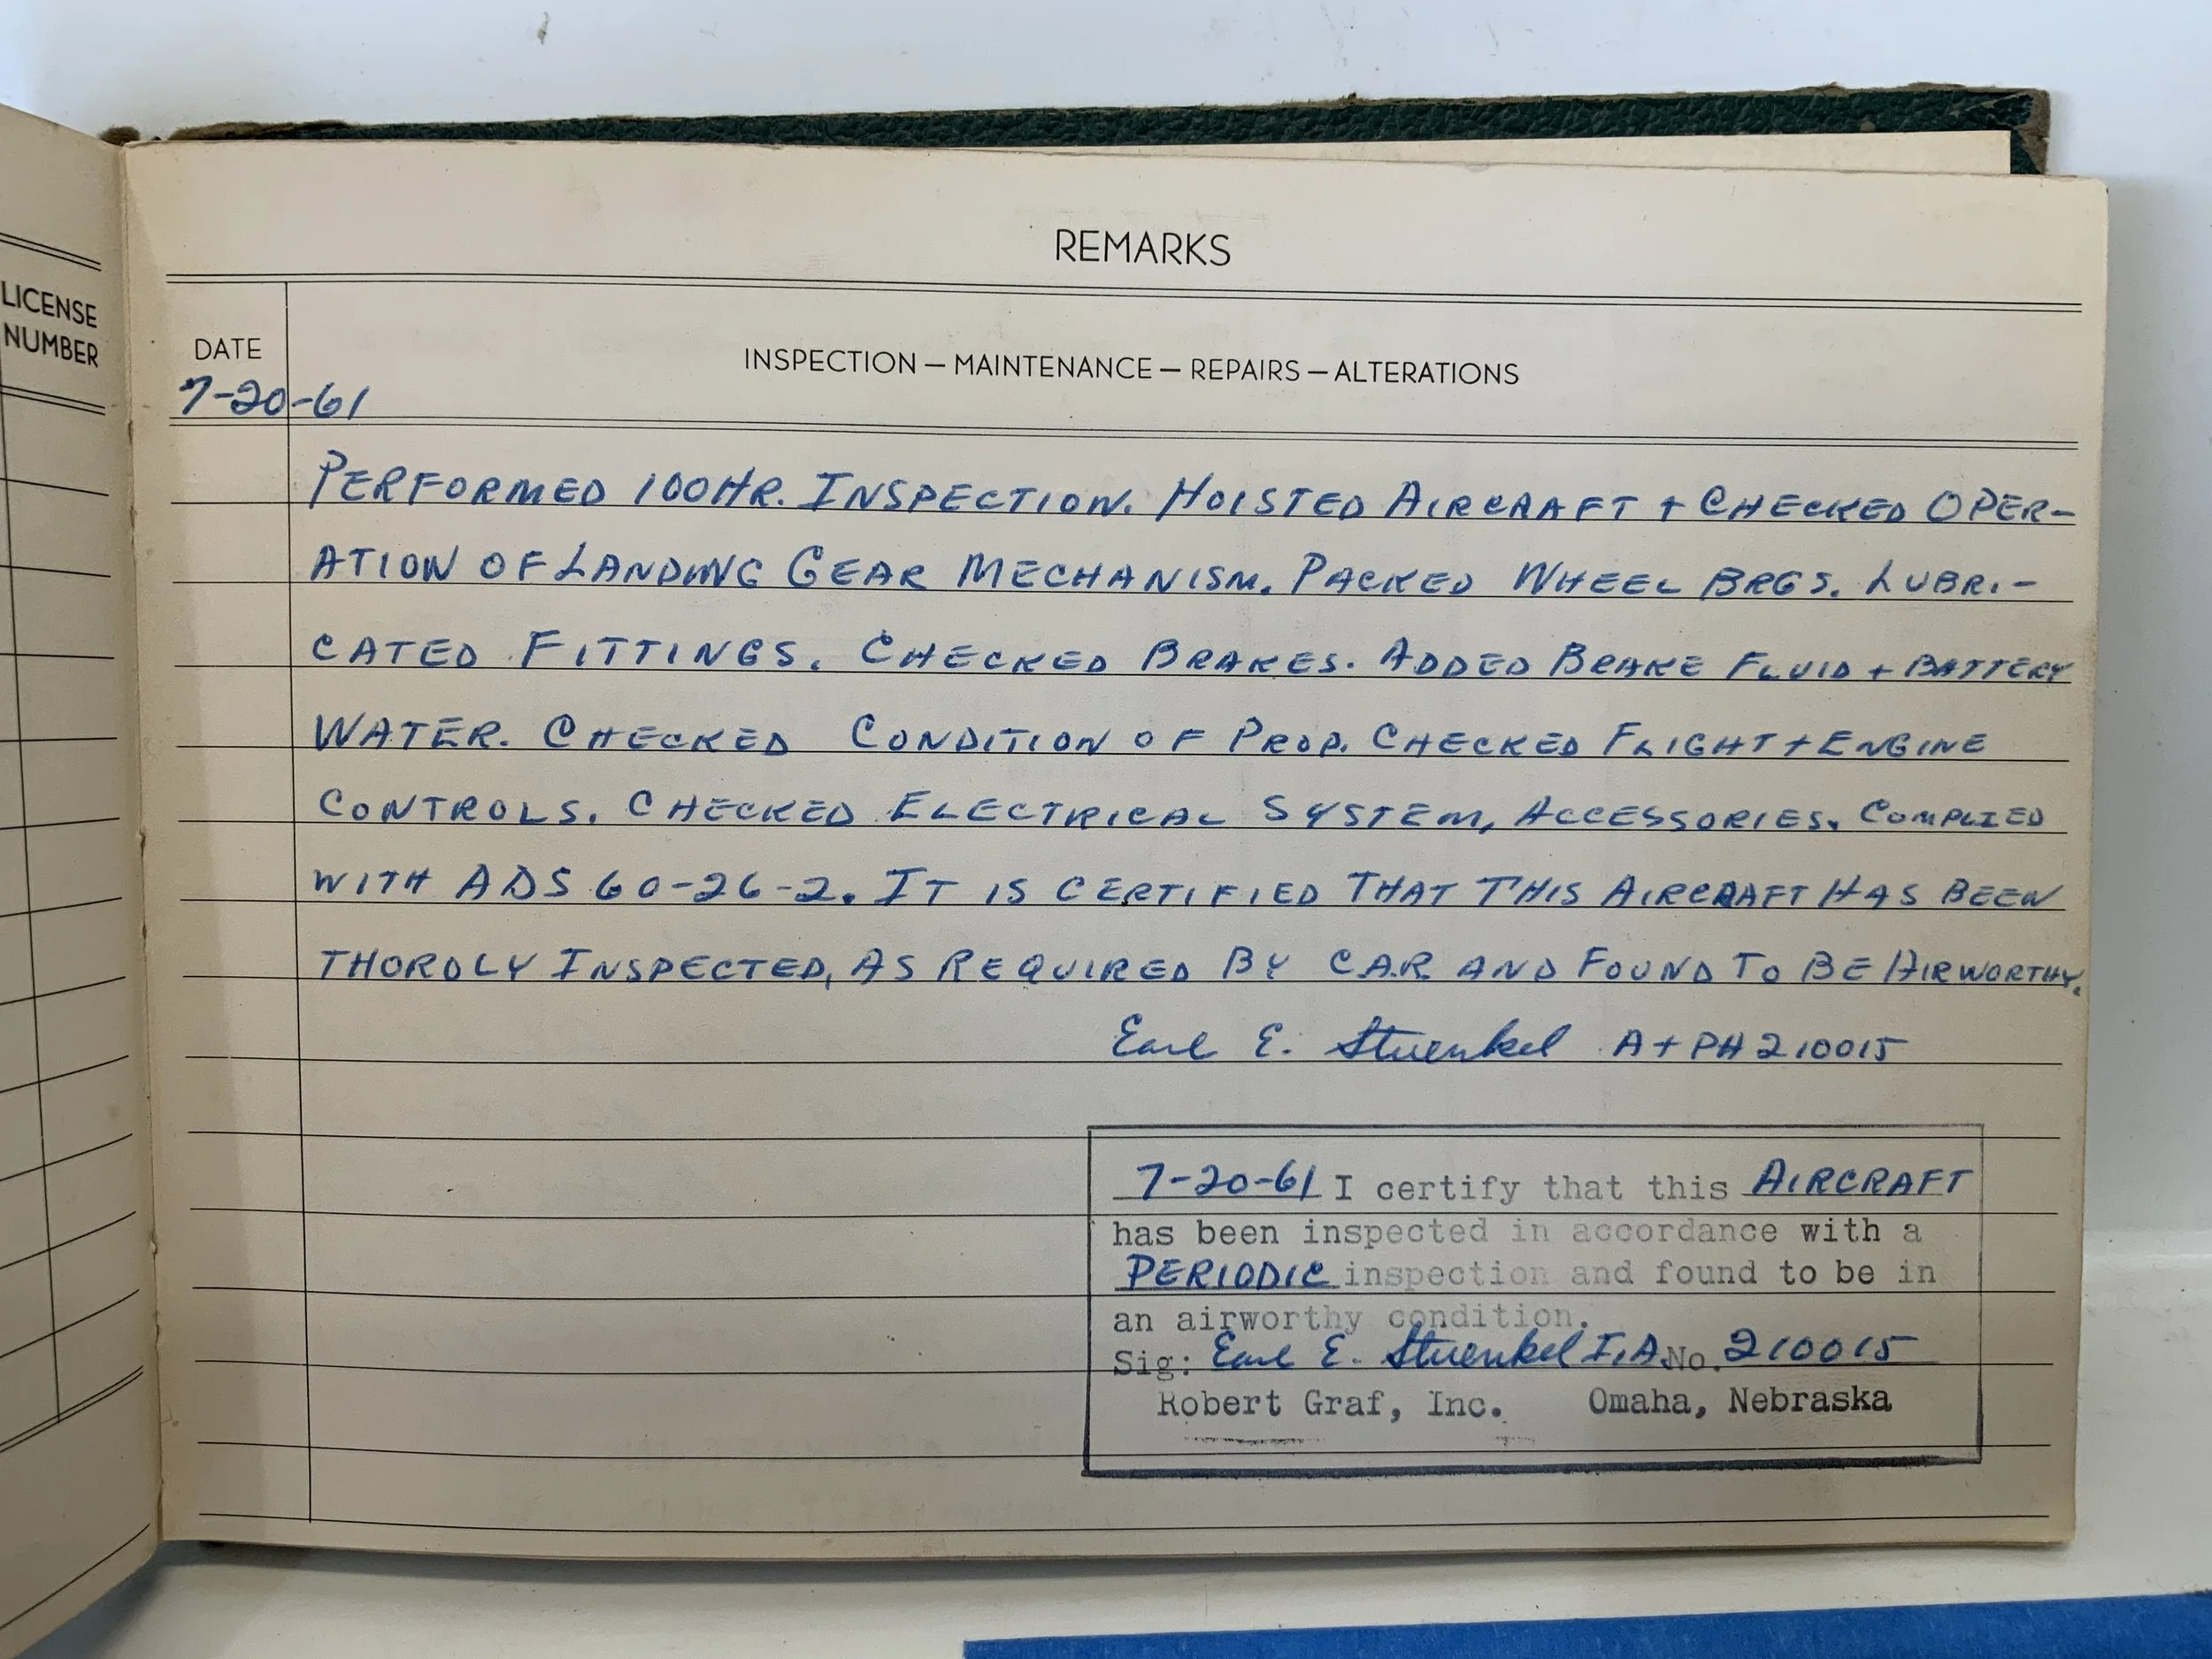 LICENSE
NUMBER
REMARKS
DATE
INSPECTION — MAINTENANCE — REPAIRS — ALTERATIONS
7-20-61
PERFORMED 100HR. INSPECTION. HOISTED AIRCRAFT + CHECKED OPER-
ATION OF LANDING GEAR MECHANISM. PACKED WHEEL BRGS. LUBRI-
CATED FITTINGS. CHECKED BRAKES. ADDED BRAKE FLUID + BATTERY
WATER. CHECKED CONDITION OF PROP. CHECKED FLIGHT + ENGINE
CONTROLS. CHECKED ELECTRICAL SYSTEM, ACCESSORIES. COMPLIED
WITH ADS 60-26-2. IT IS CERTIFIED THAT THIS AIRCRAFT HAS BEEN
THOROLY INSPECTED, AS REQUIRED BY C.A.R AND FOUND TO BE AIRWORTHY.
Earl E. Stuenkel A+PH 210015
7-20-61 I certify that this AIRCRAFT
has been inspected in accordance with a
PERIODIC inspection and found to be in
an airworthy condition.
Sig: Earl E. Stuenkel I.A. No. 210015
Robert Graf, Inc. Omaha, Nebraska